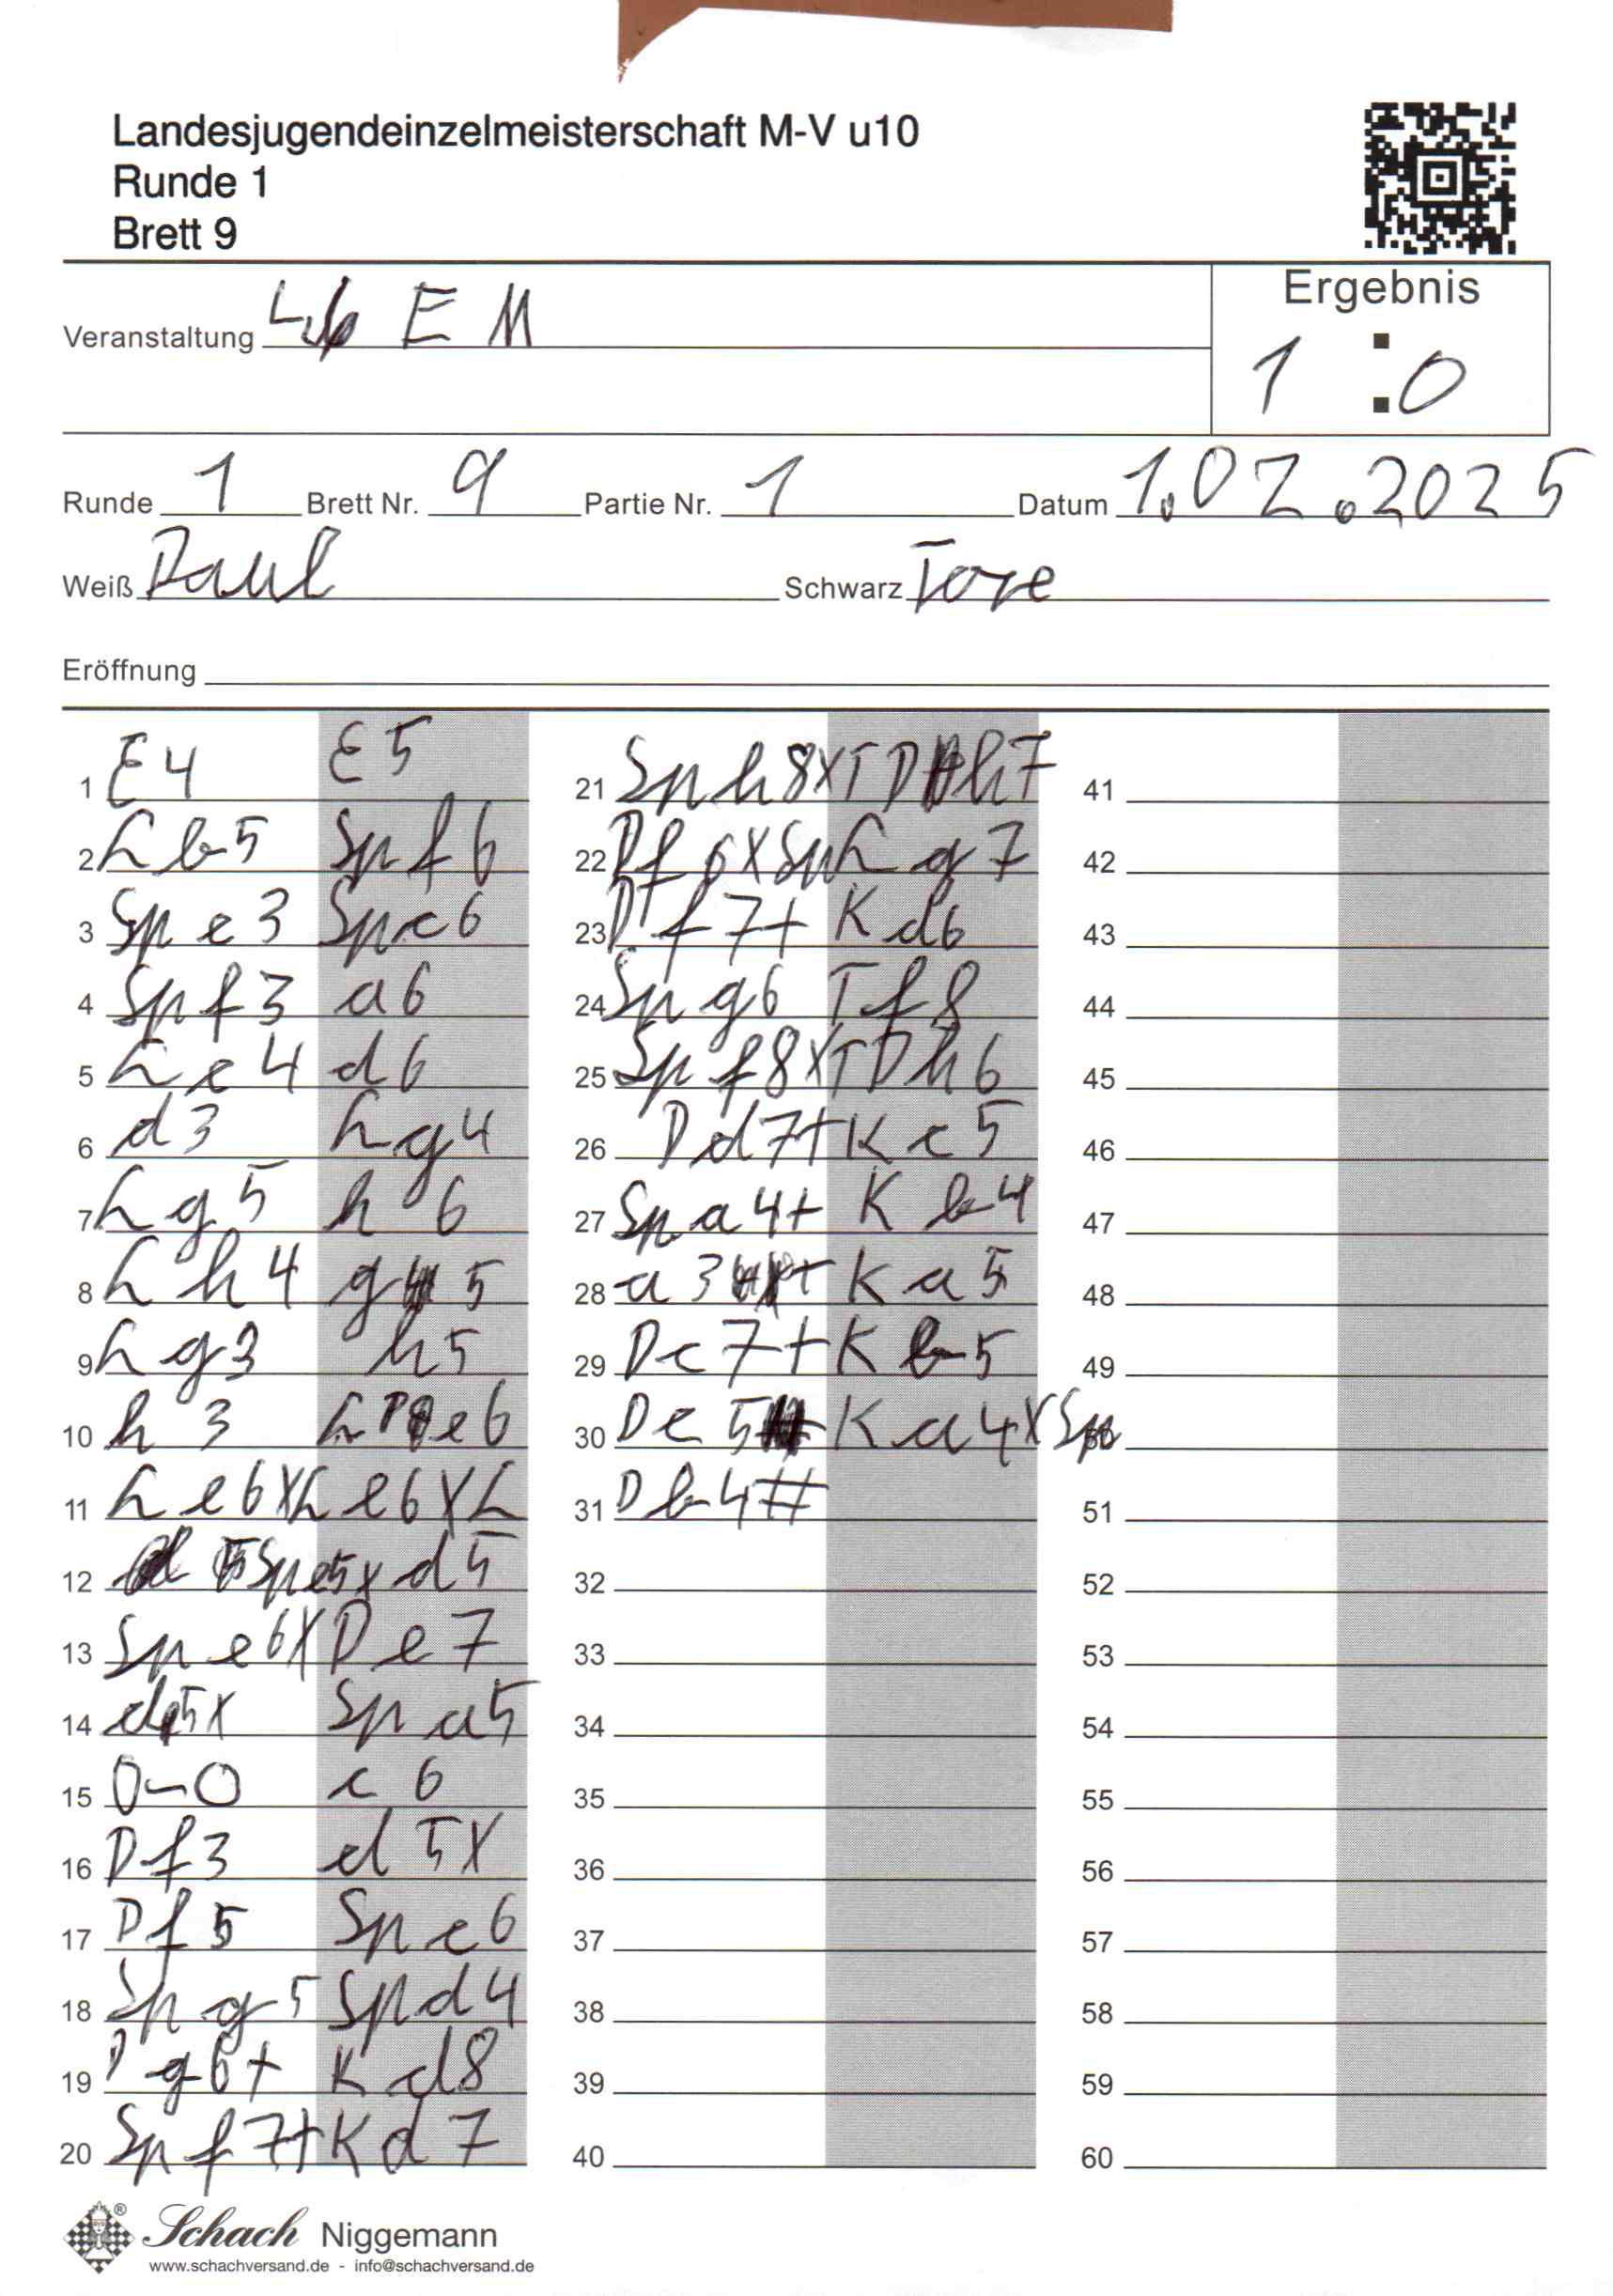 Landesjugendeinzelmeisterschaft M-V u10
Runde 1
Brett 9
Ergebnis
Veranstaltung E M
1 : 0
Runde 1 Brett Nr. 9 Partie Nr. 1 Datum 1.02.2025
Weiß Paul Schwarz Tore
Eröffnung
1 E4 E5
2 Lb5 Spf6
3 Spc3 Spc6
4 Spf3 a6
5 Lc4 d6
6 d3 Lg4
7 Lg5 h6
8 Lh4 g5
9 Lg3 h5
10 h3 Le6
11 Le6XL e6XL
12 Spe5x d5
13 Spe6X De7
14 d5X Spa5
15 0-0 c6
16 Df3 d5X
17 Df5 Spc6
18 Spg5 Spd4
19 Dg6+ Kd8
20 Spf7+ Kd7
21 Sph8XT Dh7
22 Df6XSp Lg7
23 Df7+ Kd6
24 Spg6 Tf8
25 Spf8XT Dh6
26 Dd7+ Kc5
27 Spa4+ Kb4
28 a3+ Ka5
29 Dc7+ Kb5
30 Dc5+ Ka4XSp
31 Db4#
32
33
34
35
36
37
38
39
40
41
42
43
44
45
46
47
48
49
51
52
53
54
55
56
57
58
59
60
Schach Niggemann
www.schachversand.de - info@schachversand.de